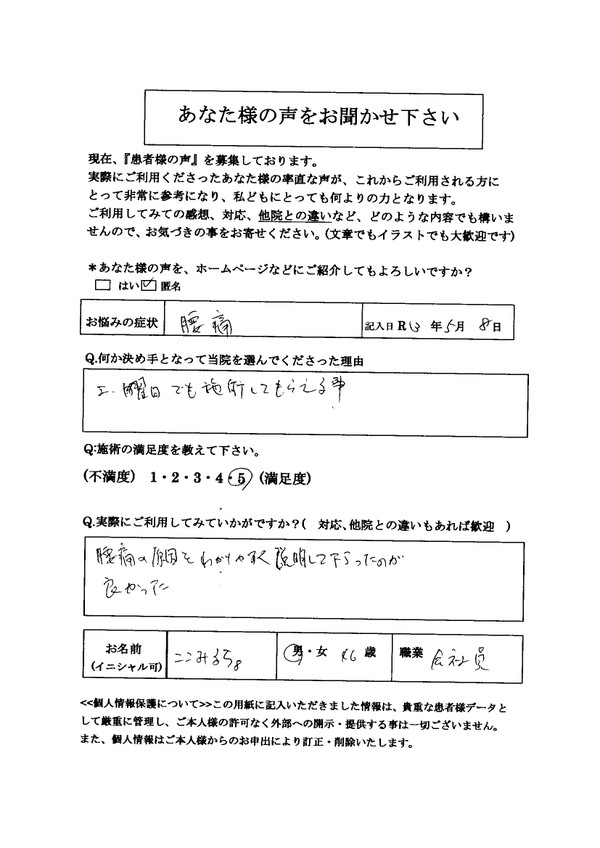 あなた様の声をお聞かせ下さい
現在、『患者様の声』を募集しております。
実際にご利用くださったあなた様の率直な声が、これからご利用される方に
とって非常に参考になり、私どもにとっても何よりの力となります。
ご利用してみての感想、対応、他院との違いなど、どのような内容でも構いま
せんので、お気づきの事をお寄せください。(文章でもイラストでも大歓迎です)
＊あなた様の声を、ホームページなどにご紹介してもよろしいですか?
はい 匿名
お悩みの症状 腰痛 記入日R 年5月 8日
Q.何か決め手となって当院を選んでくださった理由
曜日でも施術してもらえる事
Q:施術の満足度を教えて下さい。
(不満度) 1・2・3・4・5 (満足度)
Q.実際にご利用してみていかがですか?( 対応、他院との違いもあれば歓迎 )
腰痛の原因をわかりやすく説明して下さったのが
良かった
お名前 男・女 歳 職業 会社員
(イニシャル可)
<<個人情報保護について>>この用紙に記入いただきました情報は、貴重な患者様データと
して厳重に管理し、ご本人様の許可なく外部への開示・提供する事は一切ございません。
また、個人情報はご本人様からのお申出により訂正・削除いたします。